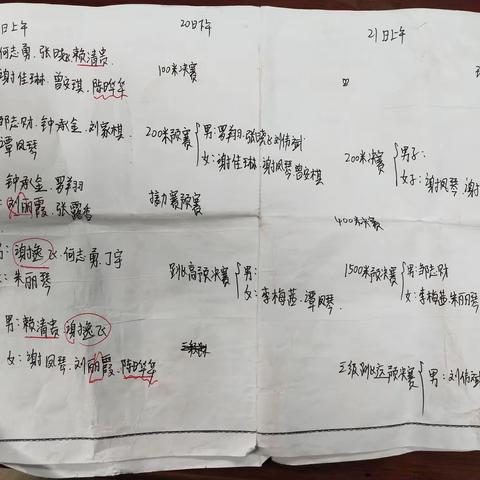 日上午
何志勇、张晓飞 赖清贵
谢佳琳、曾安琪、陈晔华
邹志财、钟承金、刘家棋
谭凤琴
钟承金、罗翔羽
刘丽霞、张露香
男：谢逸飞、何志勇、丁宇
女：朱丽琴
男：赖清贵 谢逸飞
女：谢凤琴、刘丽霞、陈晔华
20日下午
100米决赛
200米预赛 男：罗翔羽、张晓飞、刘伟斌
女：谢佳琳、谢凤琴、曾安棋
接力赛预赛
跳高预决赛 男：
女：李梅茜、谭凤琴、
21日上午
200米决赛 男子：
女子：谢凤琴、谢
400米决赛
1500米预决赛 男：邹志财
女：李梅茜、朱丽琴
三级跳远预决赛 男：刘伟斌